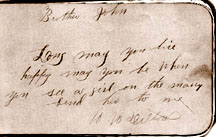 Brother John
Long may you live
happy may you be when
you se a girl on the
send her to me
W W